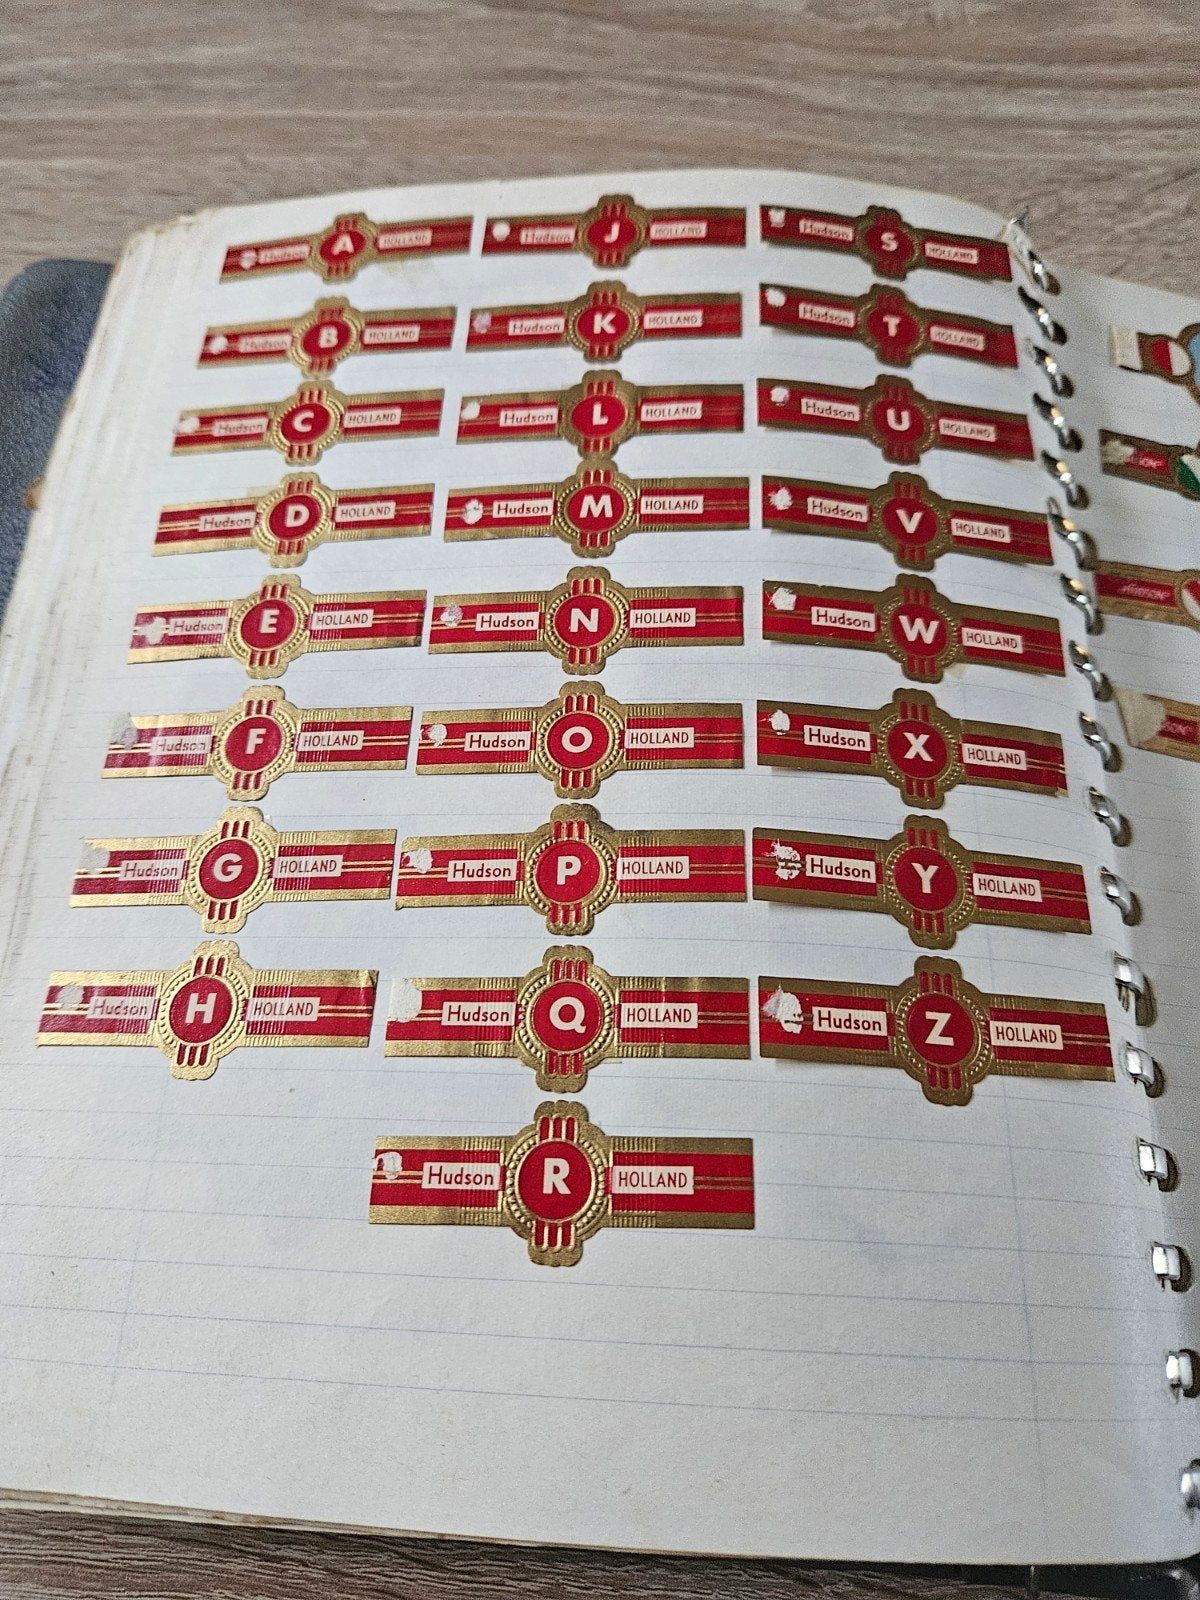 Hudson A HOLLAND
Hudson B HOLLAND
Hudson C HOLLAND
Hudson D HOLLAND
Hudson E HOLLAND
Hudson F HOLLAND
Hudson G HOLLAND
Hudson H HOLLAND
Hudson J HOLLAND
Hudson K HOLLAND
Hudson L HOLLAND
Hudson M HOLLAND
Hudson N HOLLAND
Hudson O HOLLAND
Hudson P HOLLAND
Hudson Q HOLLAND
Hudson R HOLLAND
Hudson S HOLLAND
Hudson T HOLLAND
Hudson U HOLLAND
Hudson V HOLLAND
Hudson W HOLLAND
Hudson X HOLLAND
Hudson Y HOLLAND
Hudson Z HOLLAND